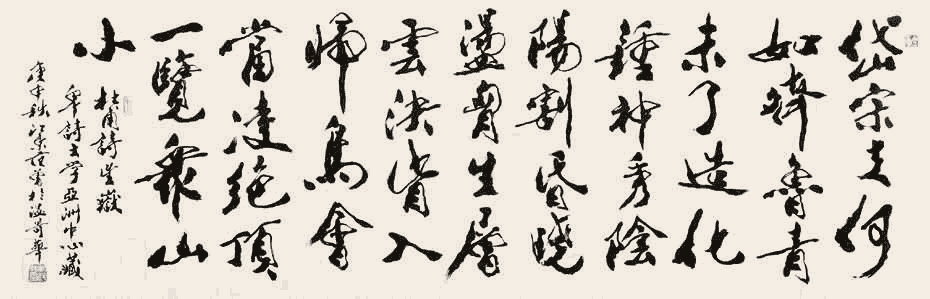 岱宗夫何
如齊魯青
未了造化
鍾神秀陰
陽割昏曉
盪胷生層
雲決眥入
歸鳥會
當凌絕頂
一覽眾山
小
杜甫詩望嶽
卑詩大学亞洲中心藏
庚申秋於溫哥華